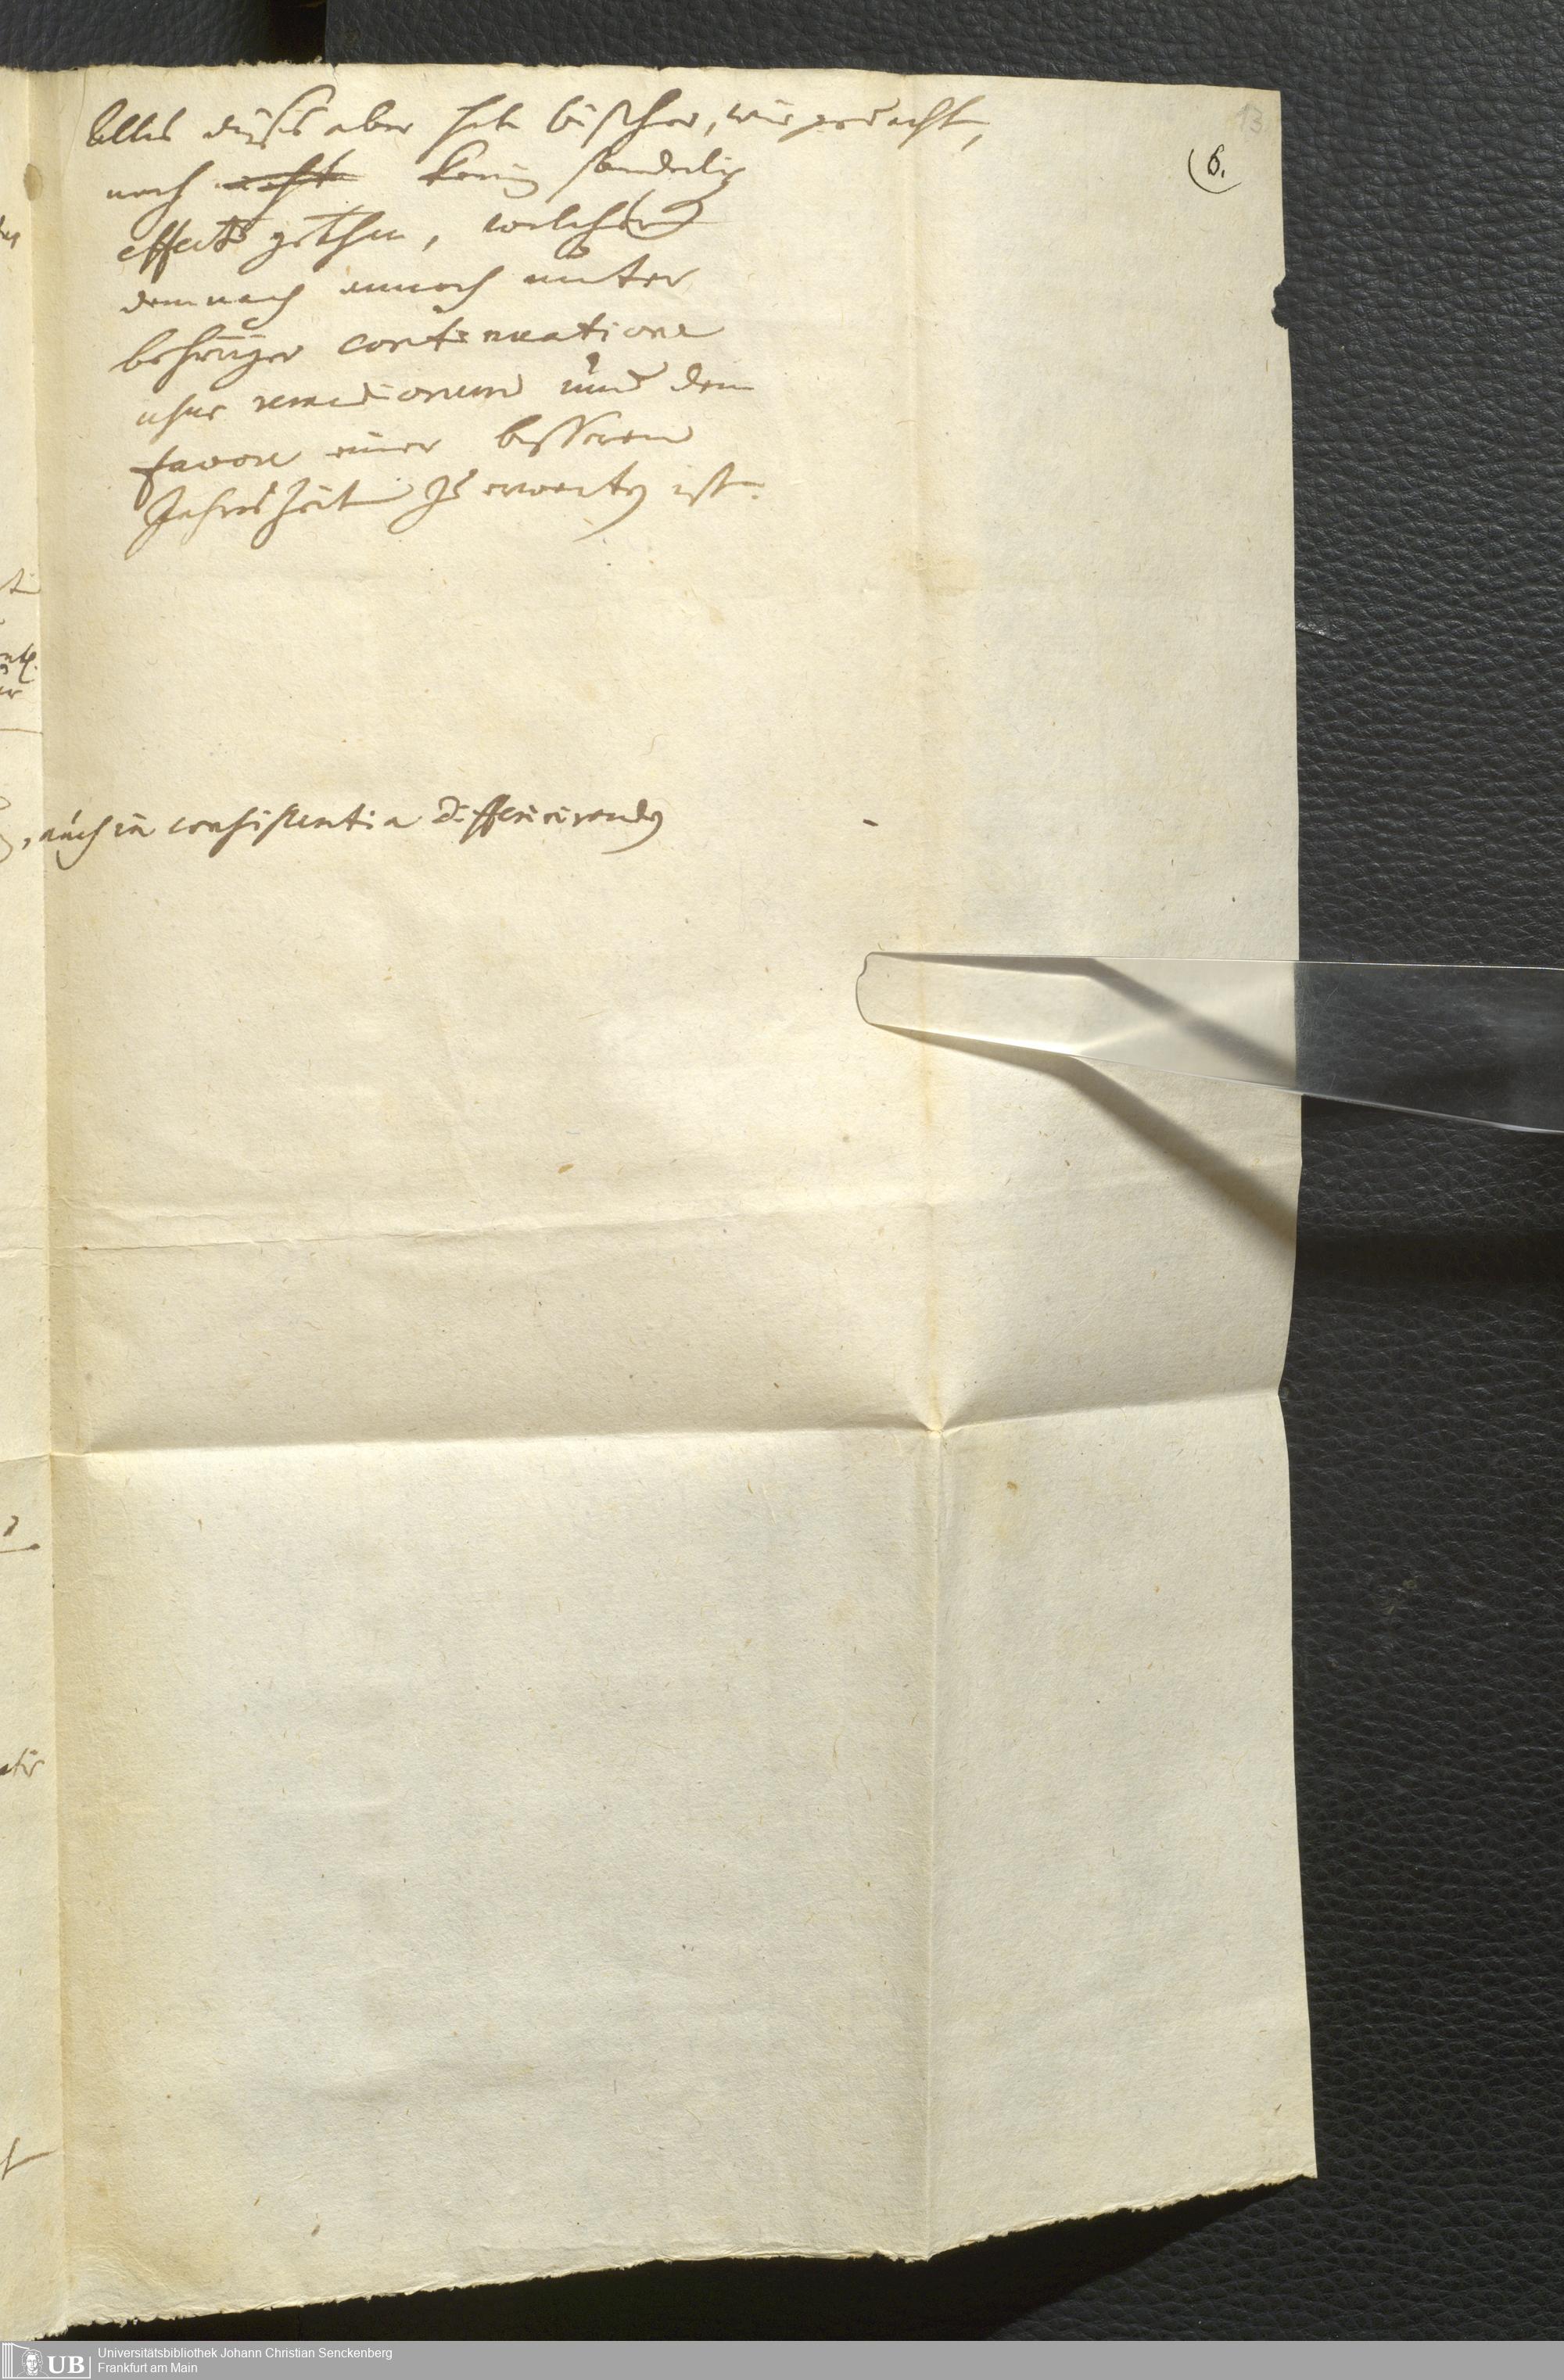 13
(6.
Alles dießes aber hat bißher, wie gedacht,
noch nicht keine sonderlich
effect gethan, welcher
demnach annoch unter
behöriger continuatione
usus remediorum und dem
favore einer besseren
Jahrszeit zu erwarten ist.
, auch in consistentia differirenden
Universitätsbibliothek Johann Christian Senckenberg
Frankfurt am Main
UB